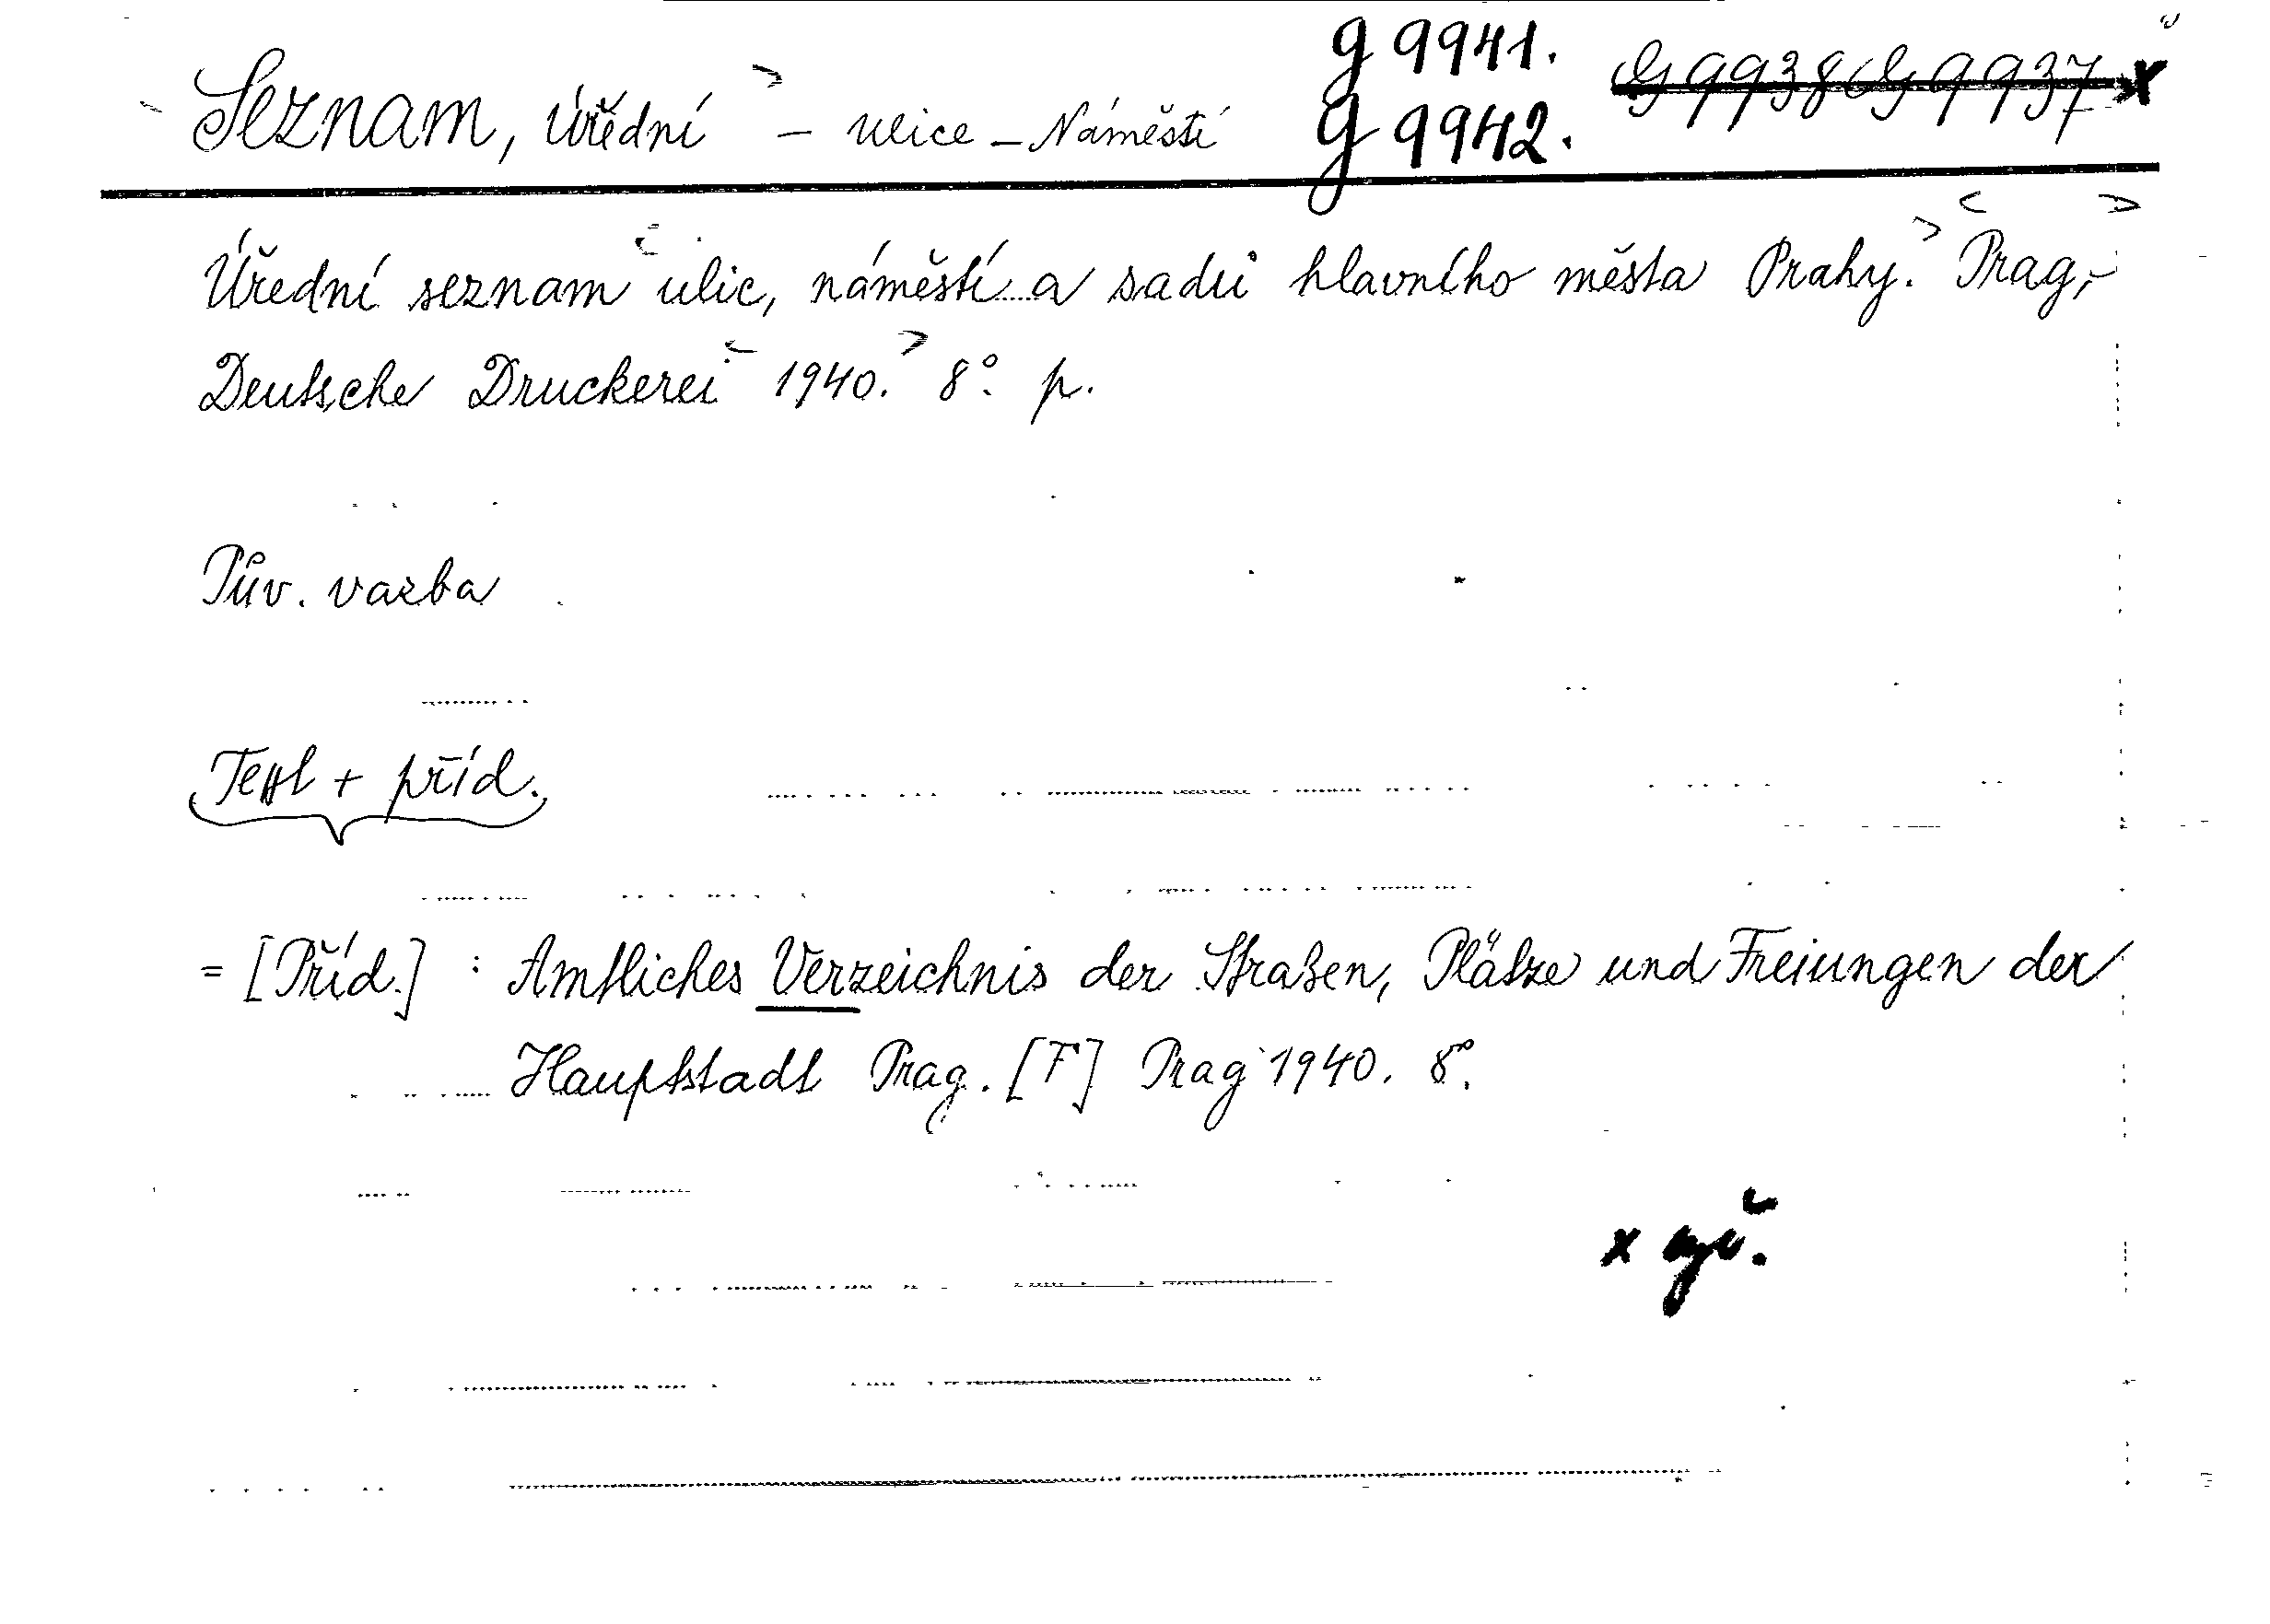 Seznam, úřední – ulice – Náměstí g 9941. G 9938 G 9937 x
g 9942.
Úřední seznam ulic, náměstí a sadů hlavního města Prahy. Prag,-
Deutsche Druckerei 1940. 8°. p.
Pův. vazba
Text + příd.
= [Příd.] : Amtliches Verzeichnis der Straßen, Plätze und Freiungen der
Hauptstadt Prag. [T] Prag 1940. 8°.
x